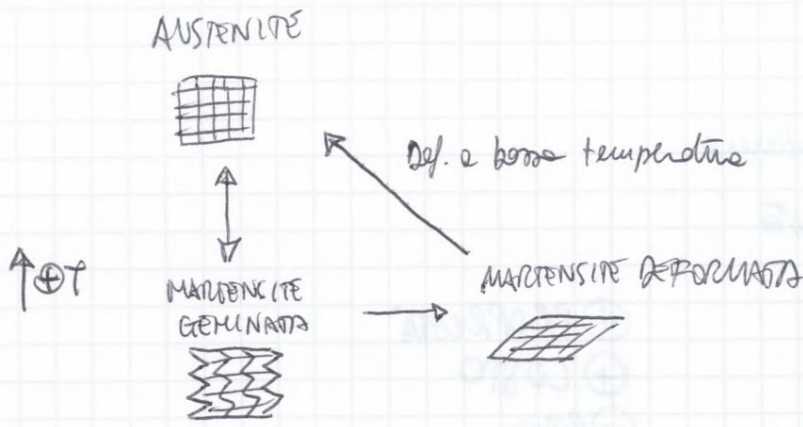 AUSTENITE
Def. a bassa temperatura
⊕T
MARTENSITE
GEMINATA
MARTENSITE DEFORMATA
⊕ COSTO